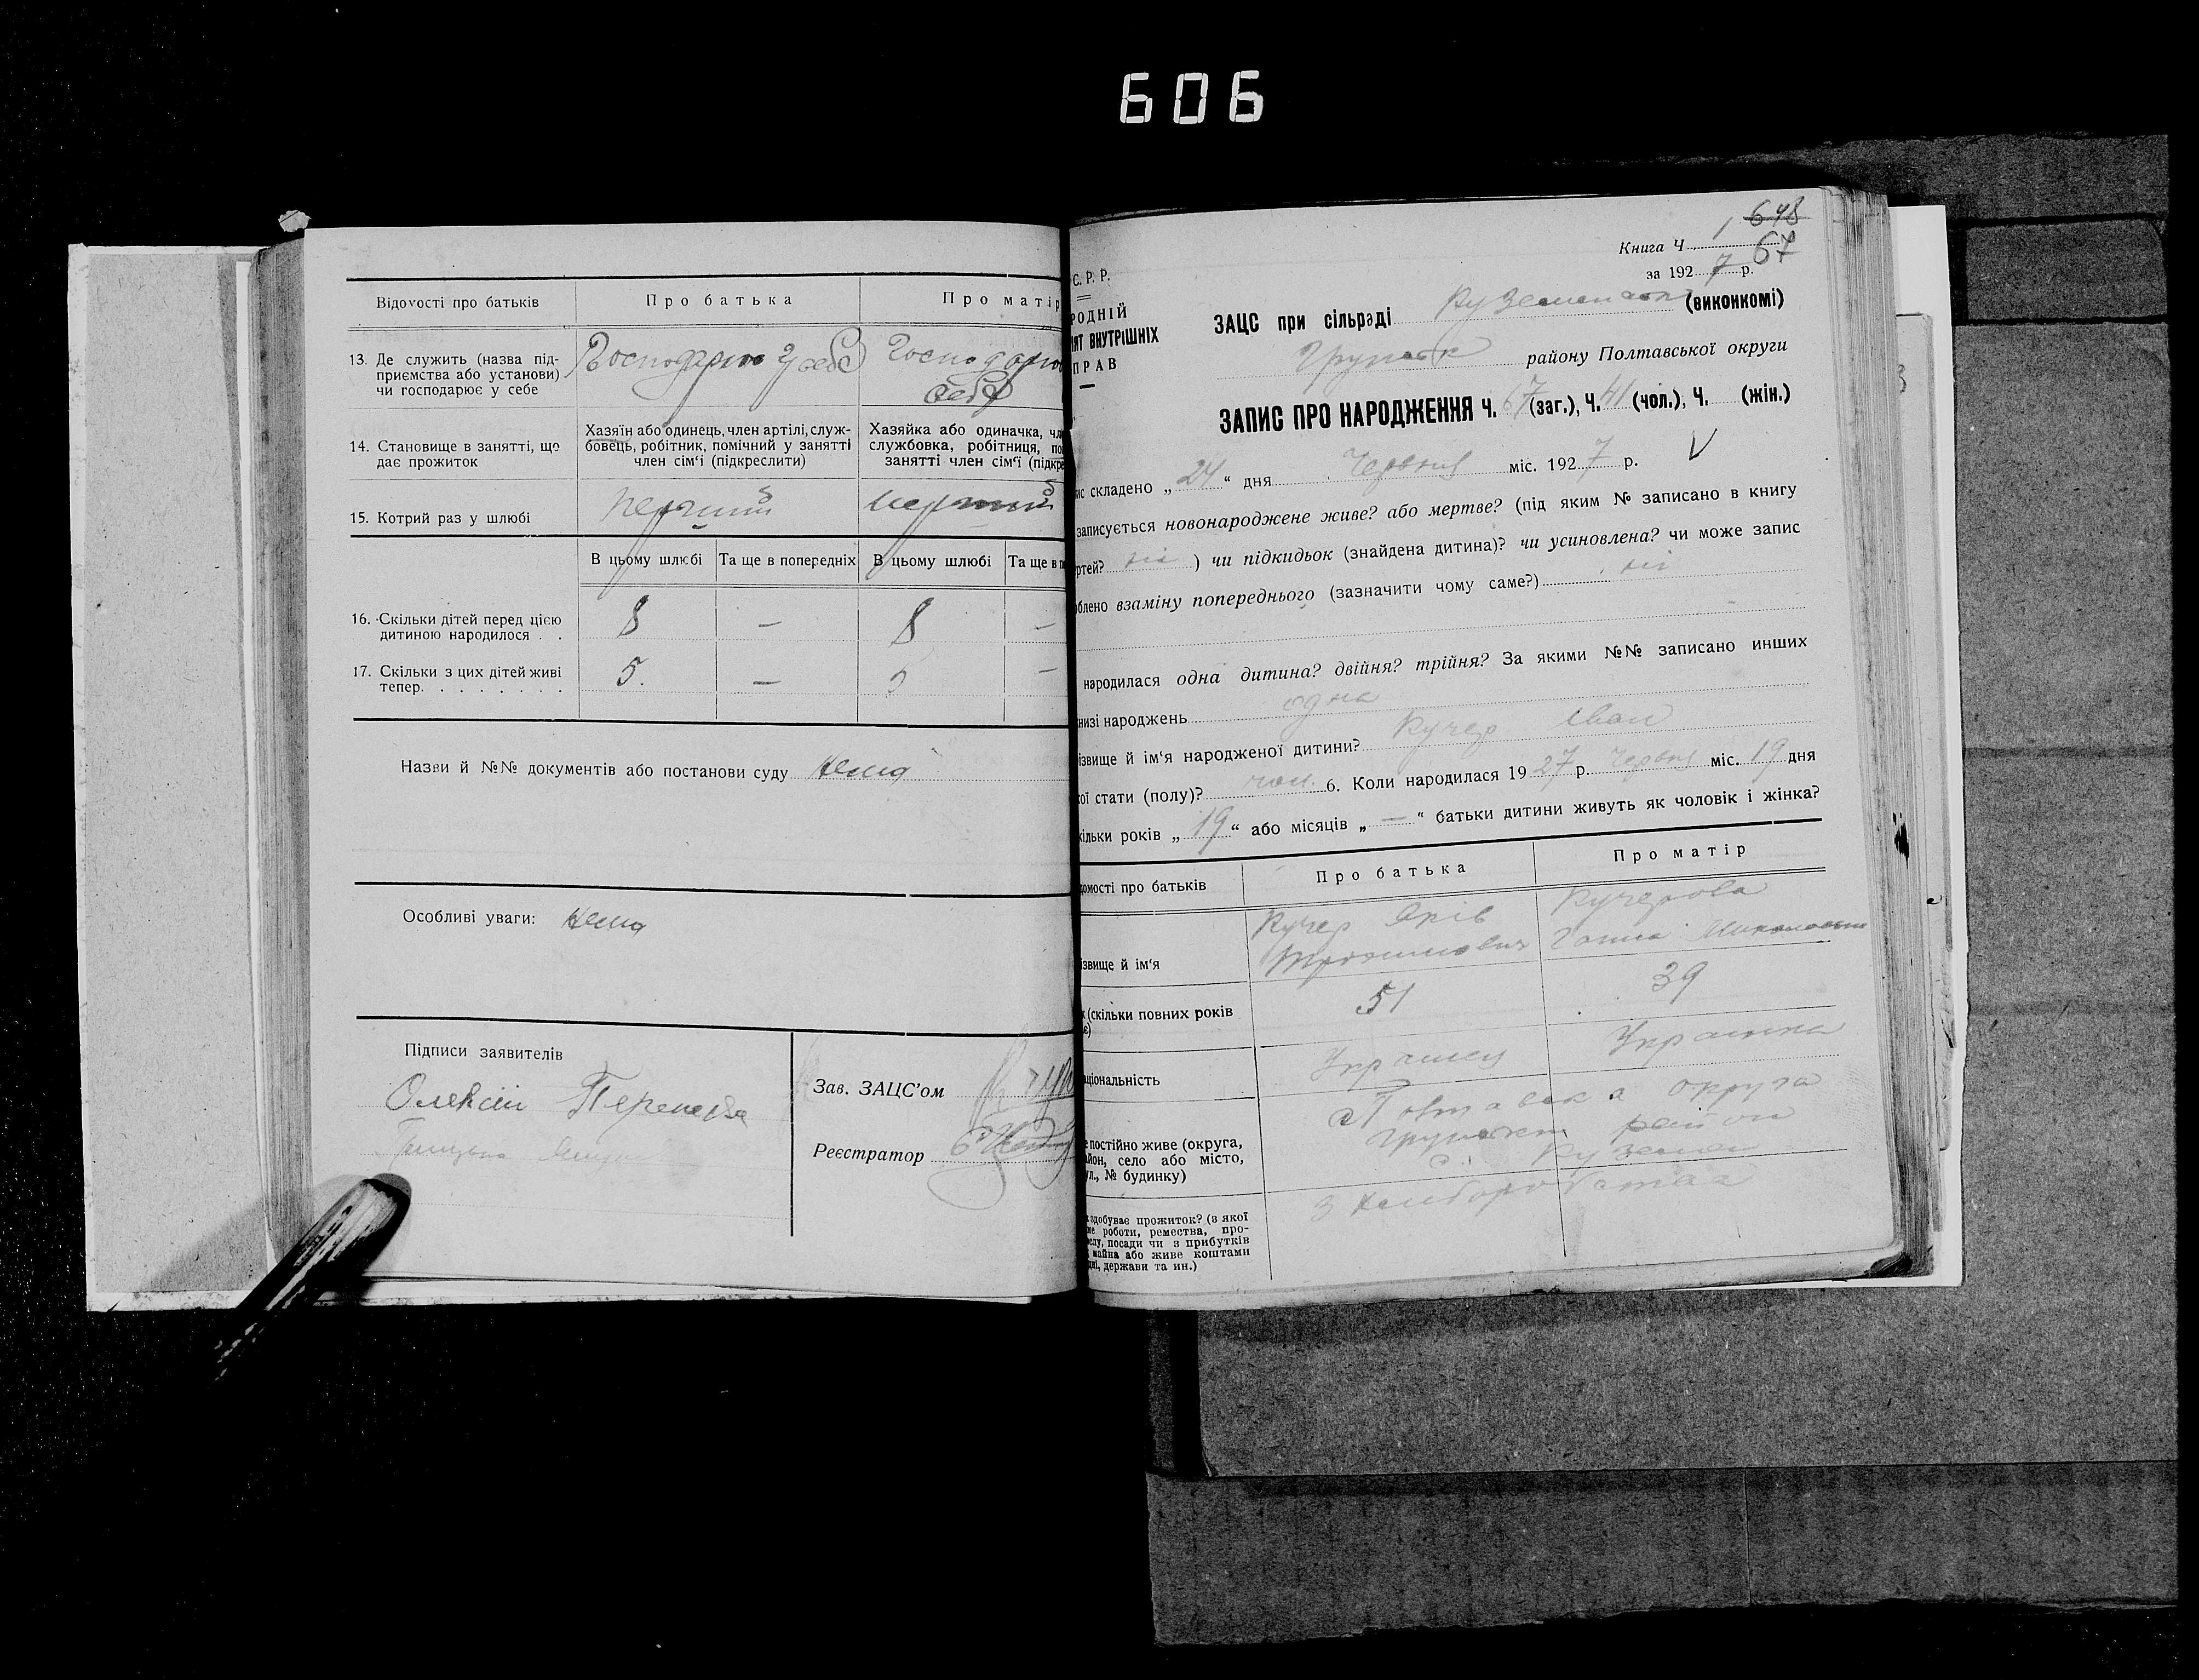 606
Відомості про батьків
Про батька
Про матір
13. Де служить (назва під-
приємства або установи)
чи господарює у себе
Господарює у себе
Господарює
себе
14. Становище в занятті, що
дає прожиток
Хазяїн або одинець, член артілі, служ-
бовець, робітник, помічний у занятті
член сім'ї (підкреслити)
Хазяйка або одиначка, чл
службовка, робітниця, по
занятті член сім'ї (підкре
15. Котрий раз у шлюбі
перший
перший
В цьому шлюбі
Та ще в попередніх
В цьому шлюбі
Та ще в п
16. Скільки дітей перед цією
дитиною народилося . .
8 — 8 —
17. Скільки з цих дітей живі
тепер. . . . . . . .
5. — 5 —
Назви й №№ документів або постанови суду Нема
Особливі уваги: Нема
Підписи заявителів
Олексій
Зав. ЗАЦС'ом
Реєстратор
648
Книга Ч. 1
67
за 1927 р.
С. Р. Р.
РОДНІЙ
ІЯТ ВНУТРІШНІХ
ПРАВ
ЗАЦС при сільраді (виконкомі)
Грунськ району Полтавської округи
ЗАПИС ПРО НАРОДЖЕННЯ Ч. 67 (заг.), Ч. 41 (чол.), Ч. (жін.)
ис складено „24“ дня Червня міс. 1927 р.
записується новонароджене живе? або мертве? (під яким № записано в книгу
ртей? ні ) чи підкидьок (знайдена дитина)? чи усиновлена? чи може запис
облено взаміну попереднього (зазначити чому саме?) ні
народилася одна дитина? двійня? трійня? За якими №№ записано инших
низі народжень одна
ізвище й ім'я народженої дитини? Кучер Іван
ої стати (полу)? чол. 6. Коли народилася 1927 р. Червня міс. 19 дня
кільки років „19“ або місяців „—“ батьки дитини живуть як чоловік і жінка?
домості про батьків
Про батька
Про матір
ізвище й ім'я
Кучер
Трохимович
Кучерова
Ганна Миколаївна
к (скільки повних років
є)
51
39
аціональність
Українец
Українка
е постійно живе (округа,
айон, село або місто,
ул., № будинку)
Полтавська округа
Грунськ район
с. Куземен
к здобуває прожиток? (з якої
ме роботи, ремества, про-
слу, посади чи з прибутків
майна або живе коштами
дні, держави та ин.)
З хліборобства